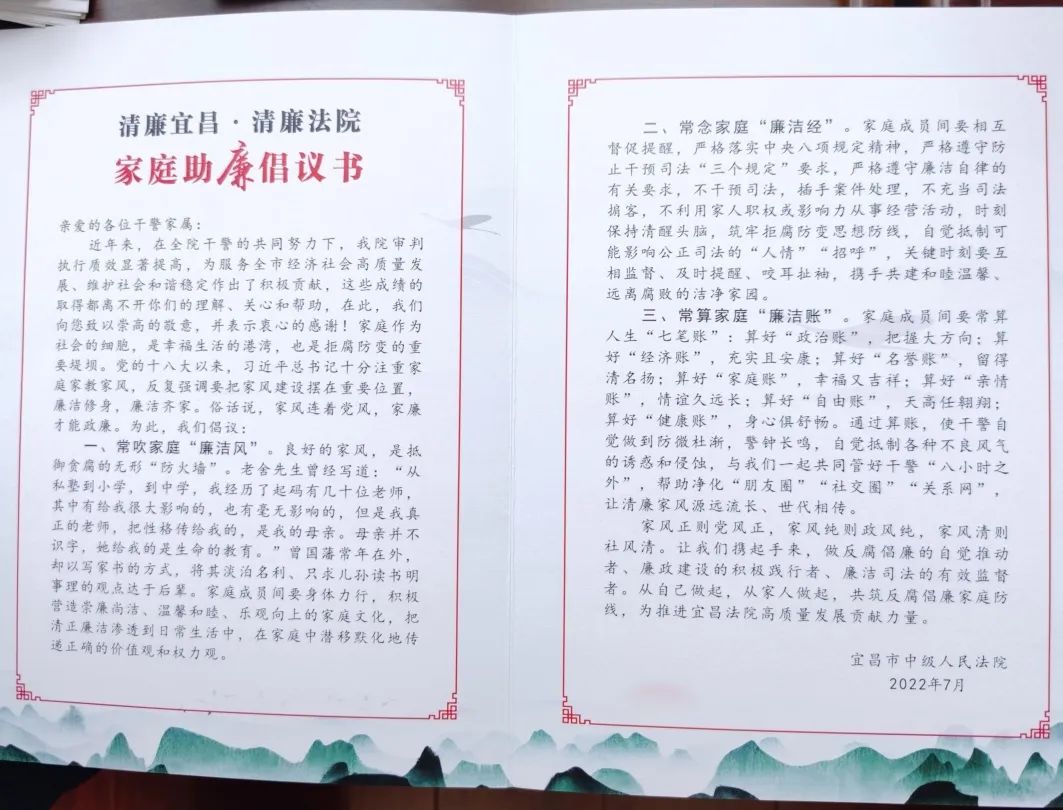 清廉宜昌·清廉法院
家庭助廉倡议书
亲爱的各位干警家属：
近年来，在全院干警的共同努力下，我院审判
执行质效显著提高，为服务全市经济社会高质量发
展、维护社会和谐稳定作出了积极贡献，这些成绩的
取得都离不开你们的理解、关心和帮助，在此，我们
向您致以崇高的敬意，并表示衷心的感谢！家庭作为
社会的细胞，是幸福生活的港湾，也是拒腐防变的重
要堤坝。党的十八大以来，习近平总书记十分注重家
庭家教家风，反复强调要把家风建设摆在重要位置，
廉洁修身，廉洁齐家。俗话说，家风连着党风，家廉
才能政廉。为此，我们倡议：
一、常吹家庭“廉洁风”。良好的家风，是抵
御贪腐的无形“防火墙”。老舍先生曾经写道：“从
私塾到小学，到中学，我经历了起码有几十位老师，
其中有给我很大影响的，也有毫无影响的，但是我真
正的老师，把性格传给我的，是我的母亲。母亲并不
识字，她给我的是生命的教育。”曾国藩常年在外，
却以写家书的方式，将其淡泊名利、只求儿孙读书明
事理的观点达于后辈。家庭成员间要身体力行，积极
营造崇廉尚洁、温馨和睦、乐观向上的家庭文化，把
清正廉洁渗透到日常生活中，在家庭中潜移默化地传
递正确的价值观和权力观。
二、常念家庭“廉洁经”。家庭成员间要相互
督促提醒，严格落实中央八项规定精神，严格遵守防
止干预司法“三个规定”要求，严格遵守廉洁自律的
有关要求，不干预司法，插手案件处理，不充当司法
掮客，不利用家人职权或影响力从事经营活动，时刻
保持清醒头脑，筑牢拒腐防变思想防线，自觉抵制可
能影响公正司法的“人情”“招呼”，关键时刻要互
相监督、及时提醒、咬耳扯袖，携手共建和睦温馨、
远离腐败的洁净家园。
三、常算家庭“廉洁账”。家庭成员间要常算
人生“七笔账”：算好“政治账”，把握大方向；算
好“经济账”，充实且安康；算好“名誉账”，留得
清名扬；算好“家庭账”，幸福又吉祥；算好“亲情
账”，情谊久远长；算好“自由账”，天高任翱翔；
算好“健康账”，身心俱舒畅。通过算账，使干警自
觉做到防微杜渐，警钟长鸣，自觉抵制各种不良风气
的诱惑和侵蚀，与我们一起共同管好干警“八小时之
外”，帮助净化“朋友圈”“社交圈”“关系网”，
让清廉家风源远流长、世代相传。
家风正则党风正，家风纯则政风纯，家风清则
社风清。让我们携起手来，做反腐倡廉的自觉推动
者、廉政建设的积极践行者、廉洁司法的有效监督
者。从自己做起，从家人做起，共筑反腐倡廉家庭防
线，为推进宜昌法院高质量发展贡献力量。
宜昌市中级人民法院
2022年7月